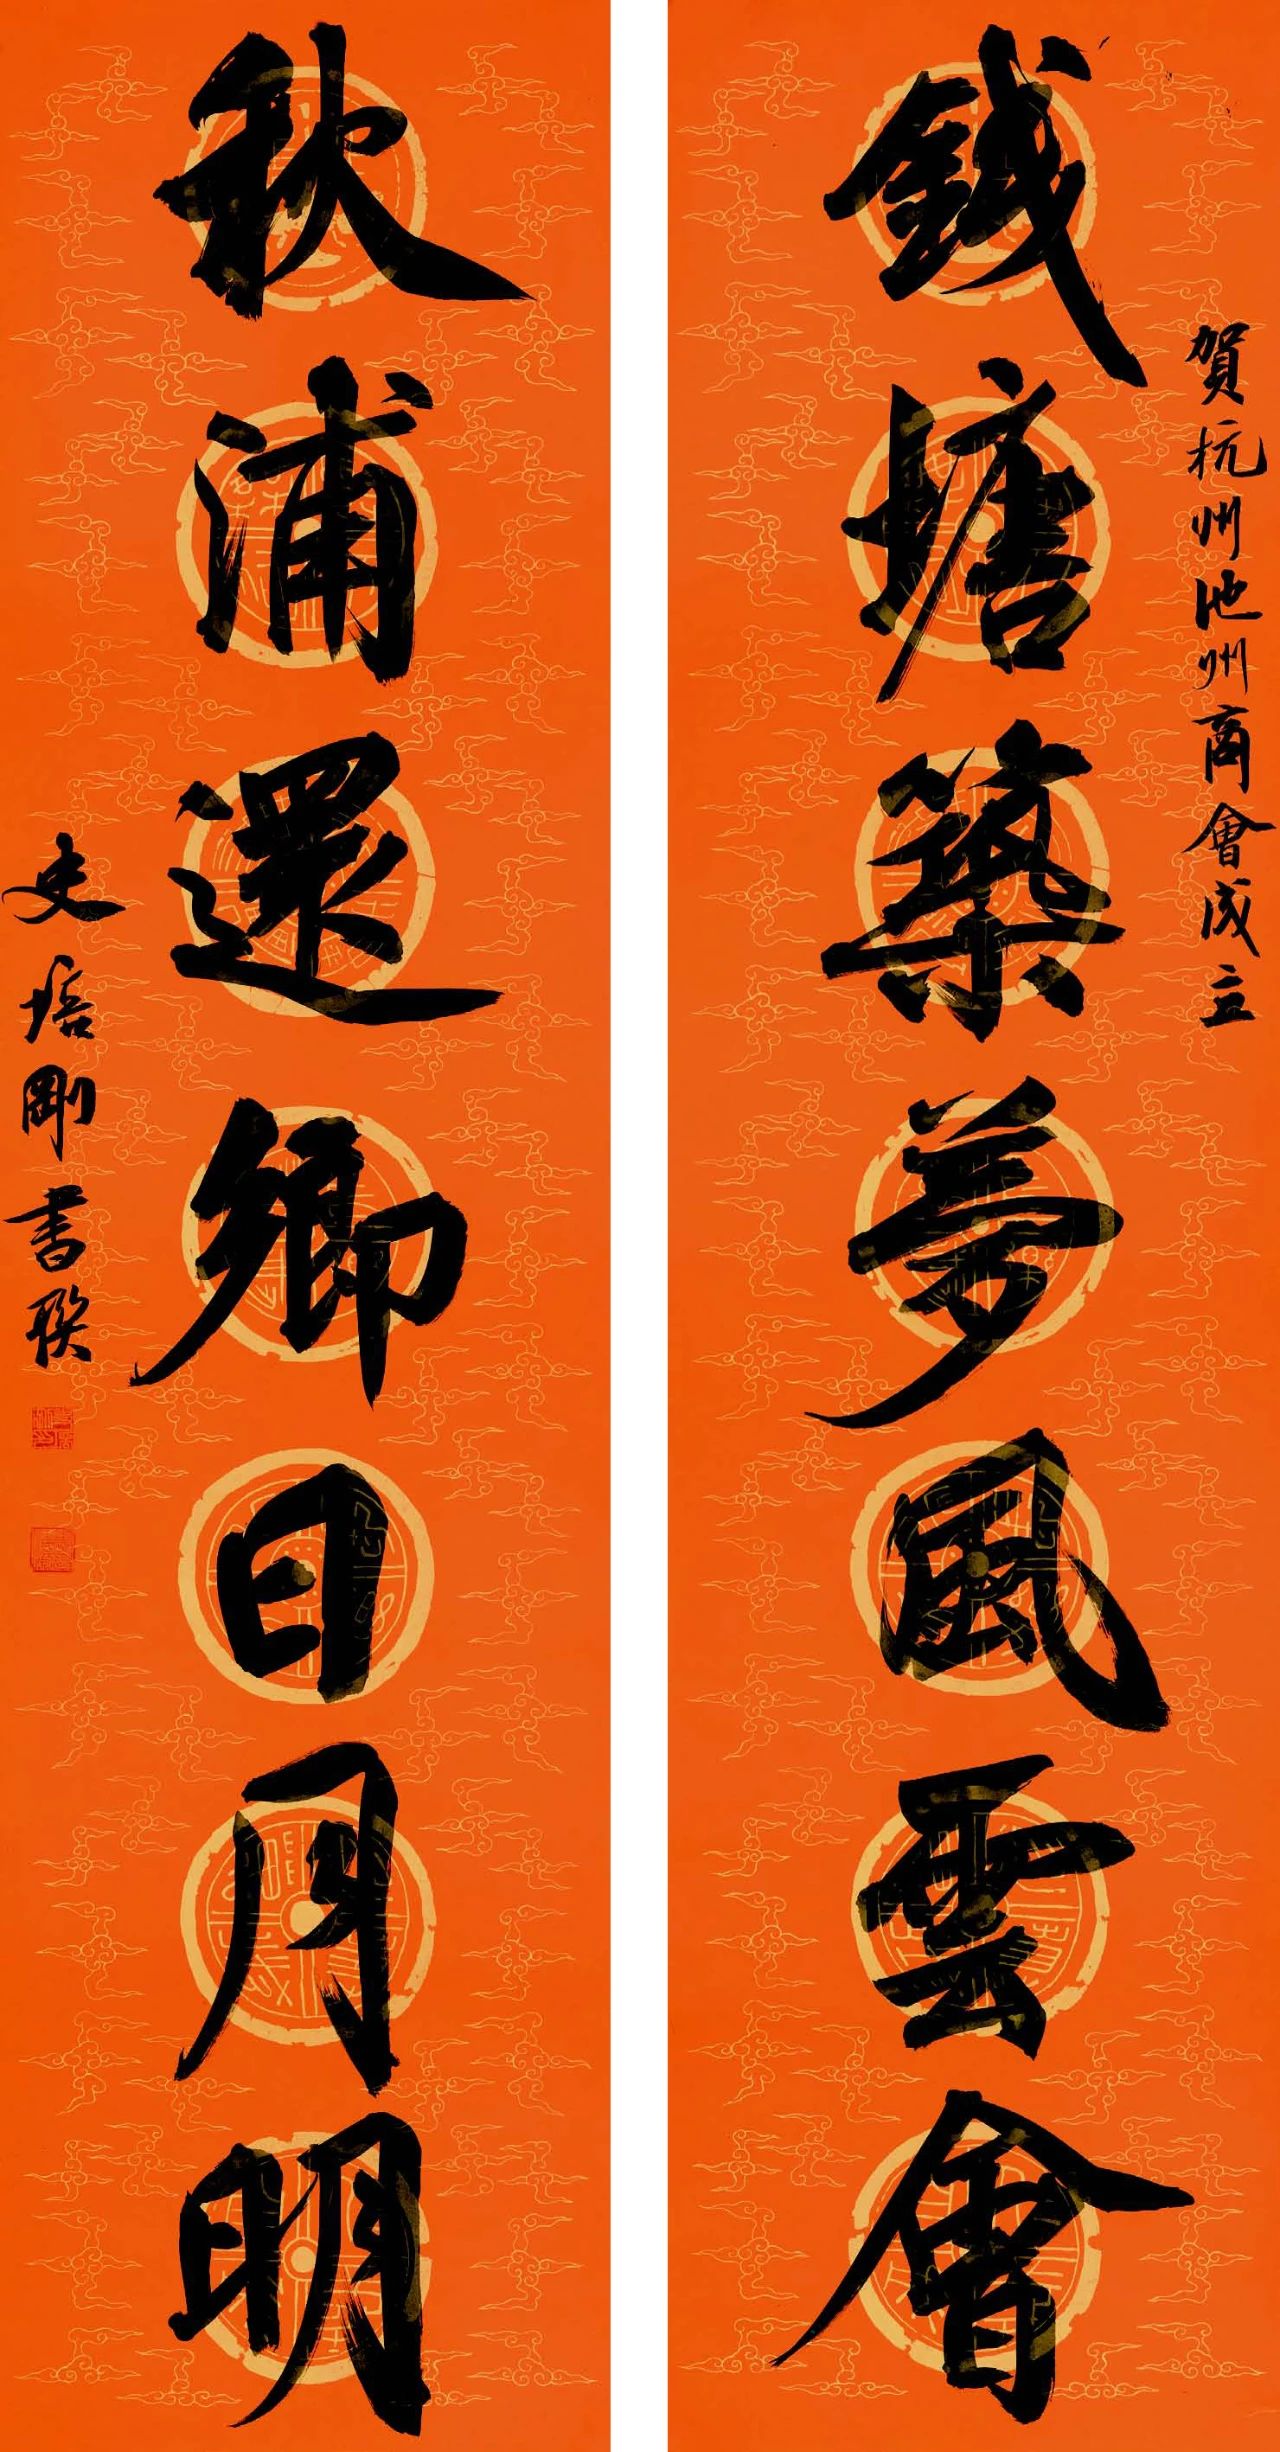 賀杭州池州商會成立
錢塘築夢風雲會
秋浦還鄉日月明
史培剛書聯